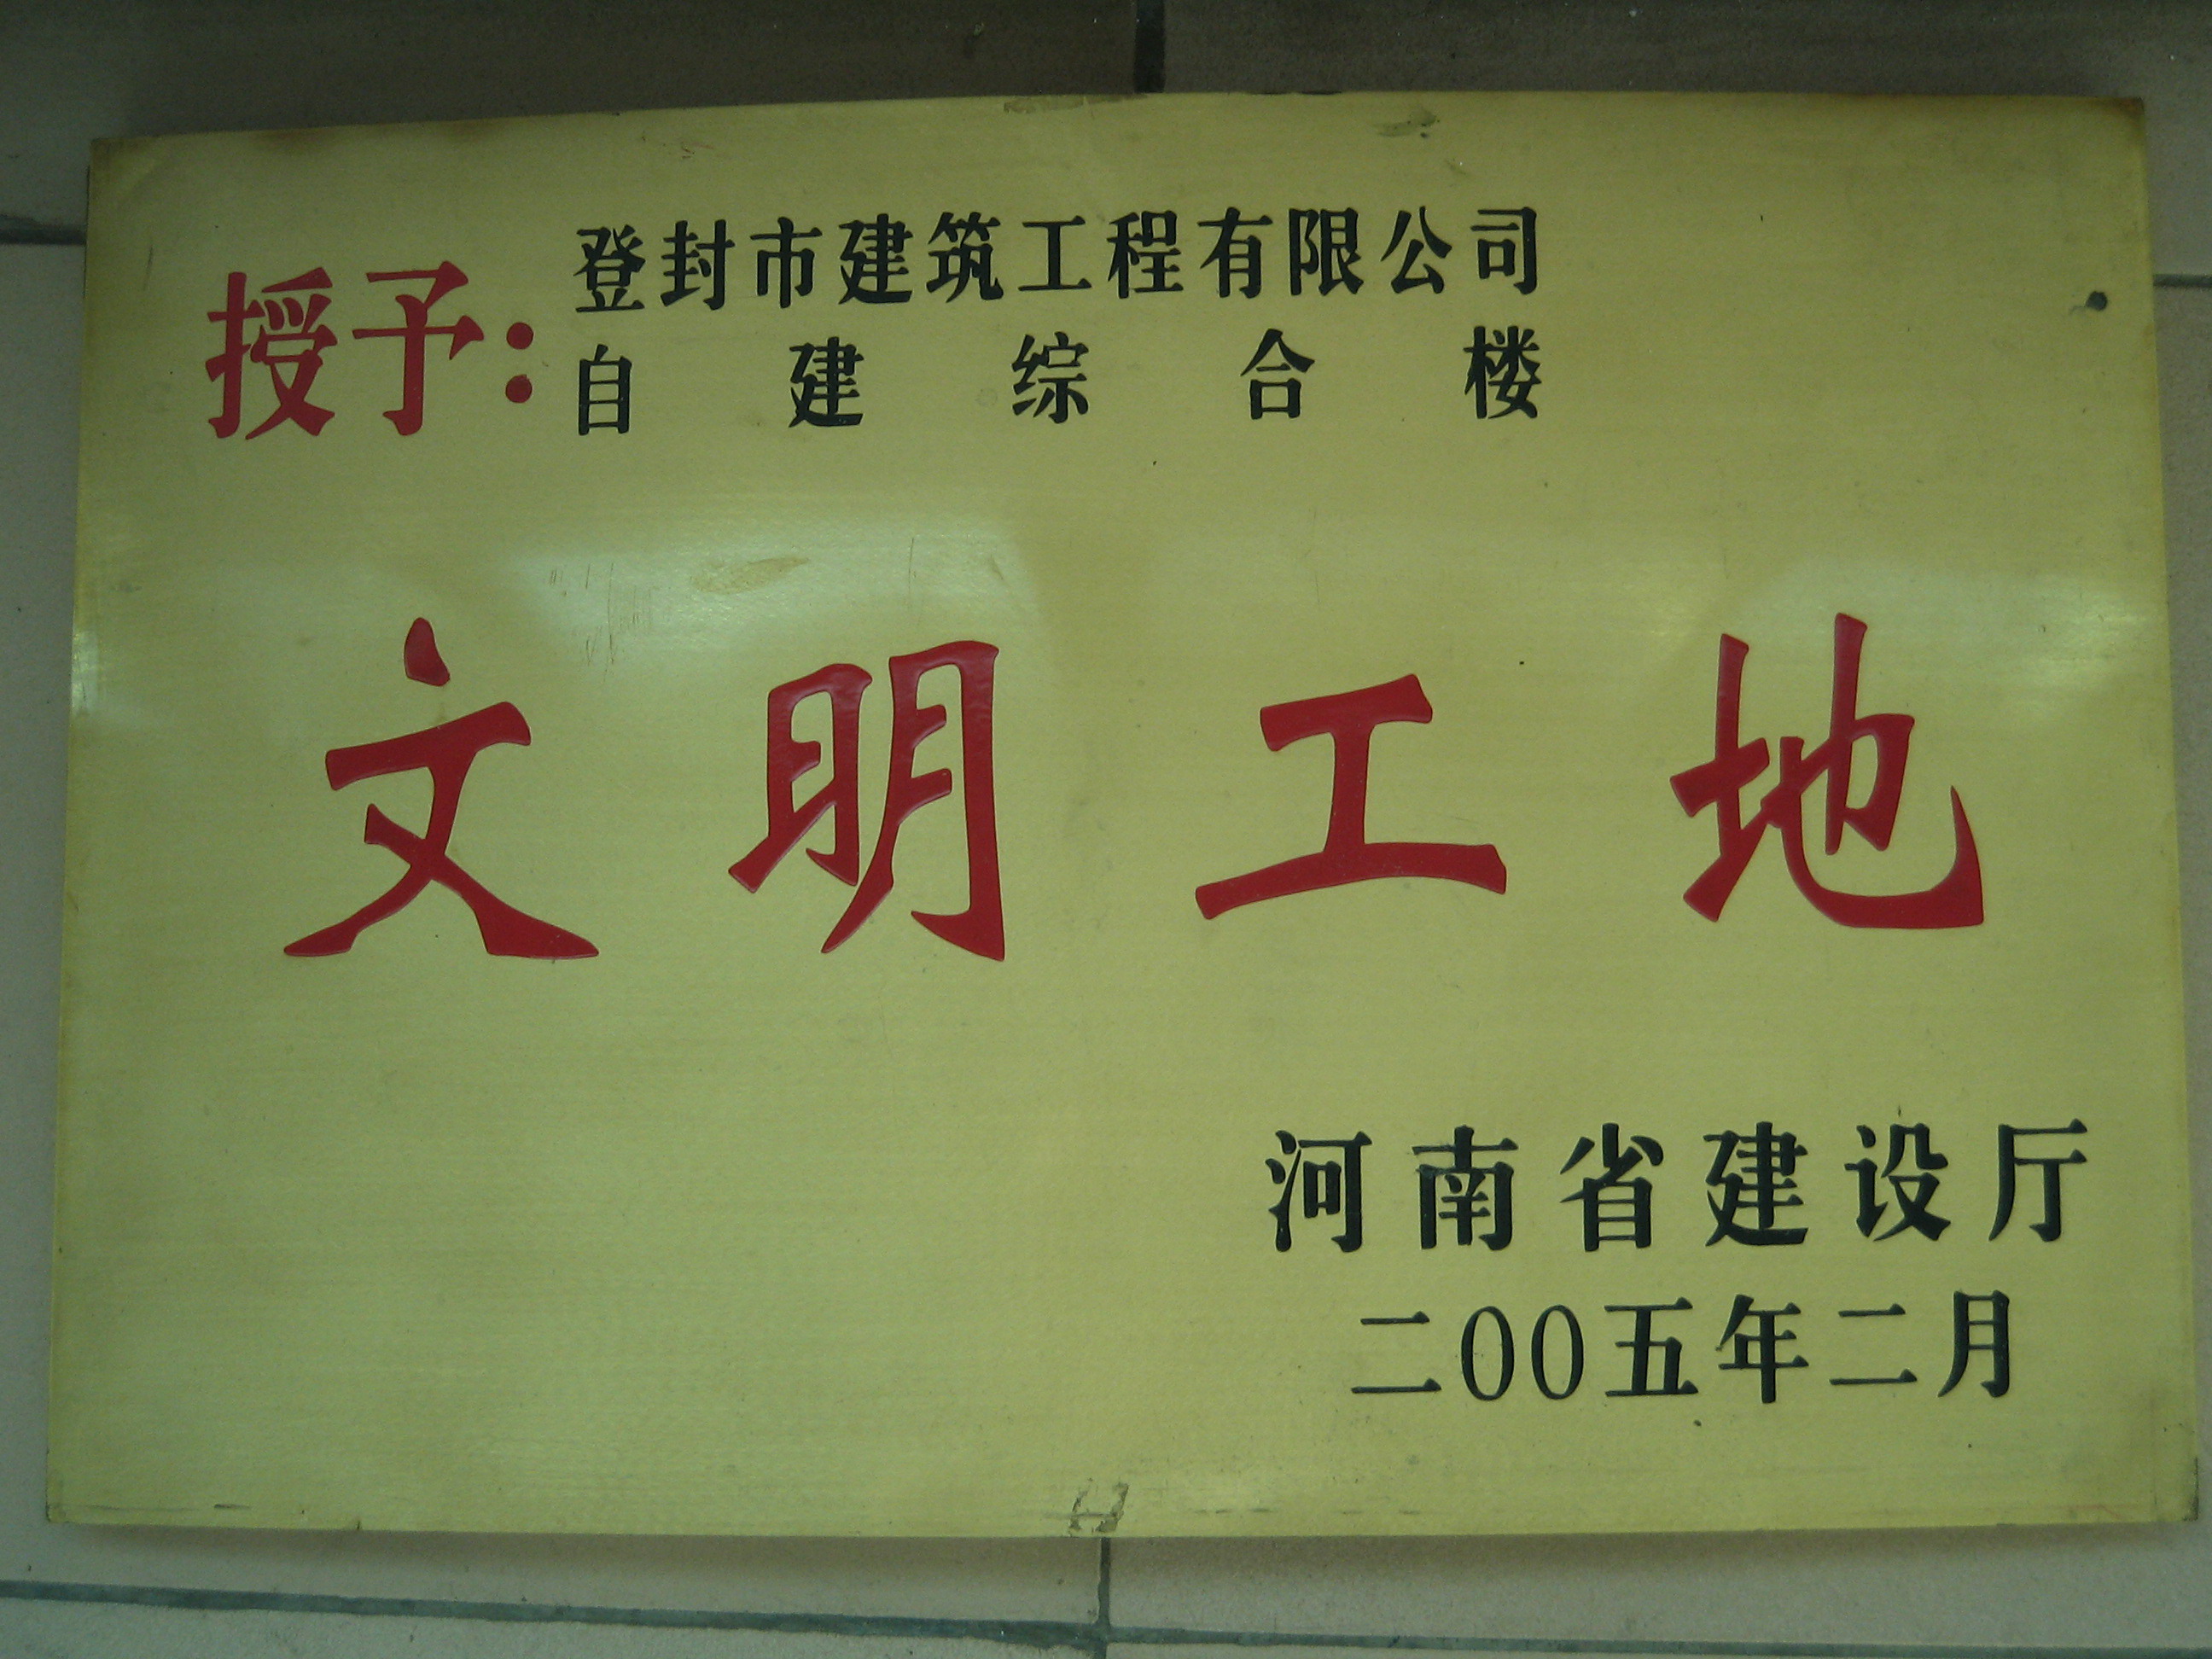 授予：
登封市建筑工程有限公司
自建综合楼
文明工地
河南省建设厅
二00五年二月